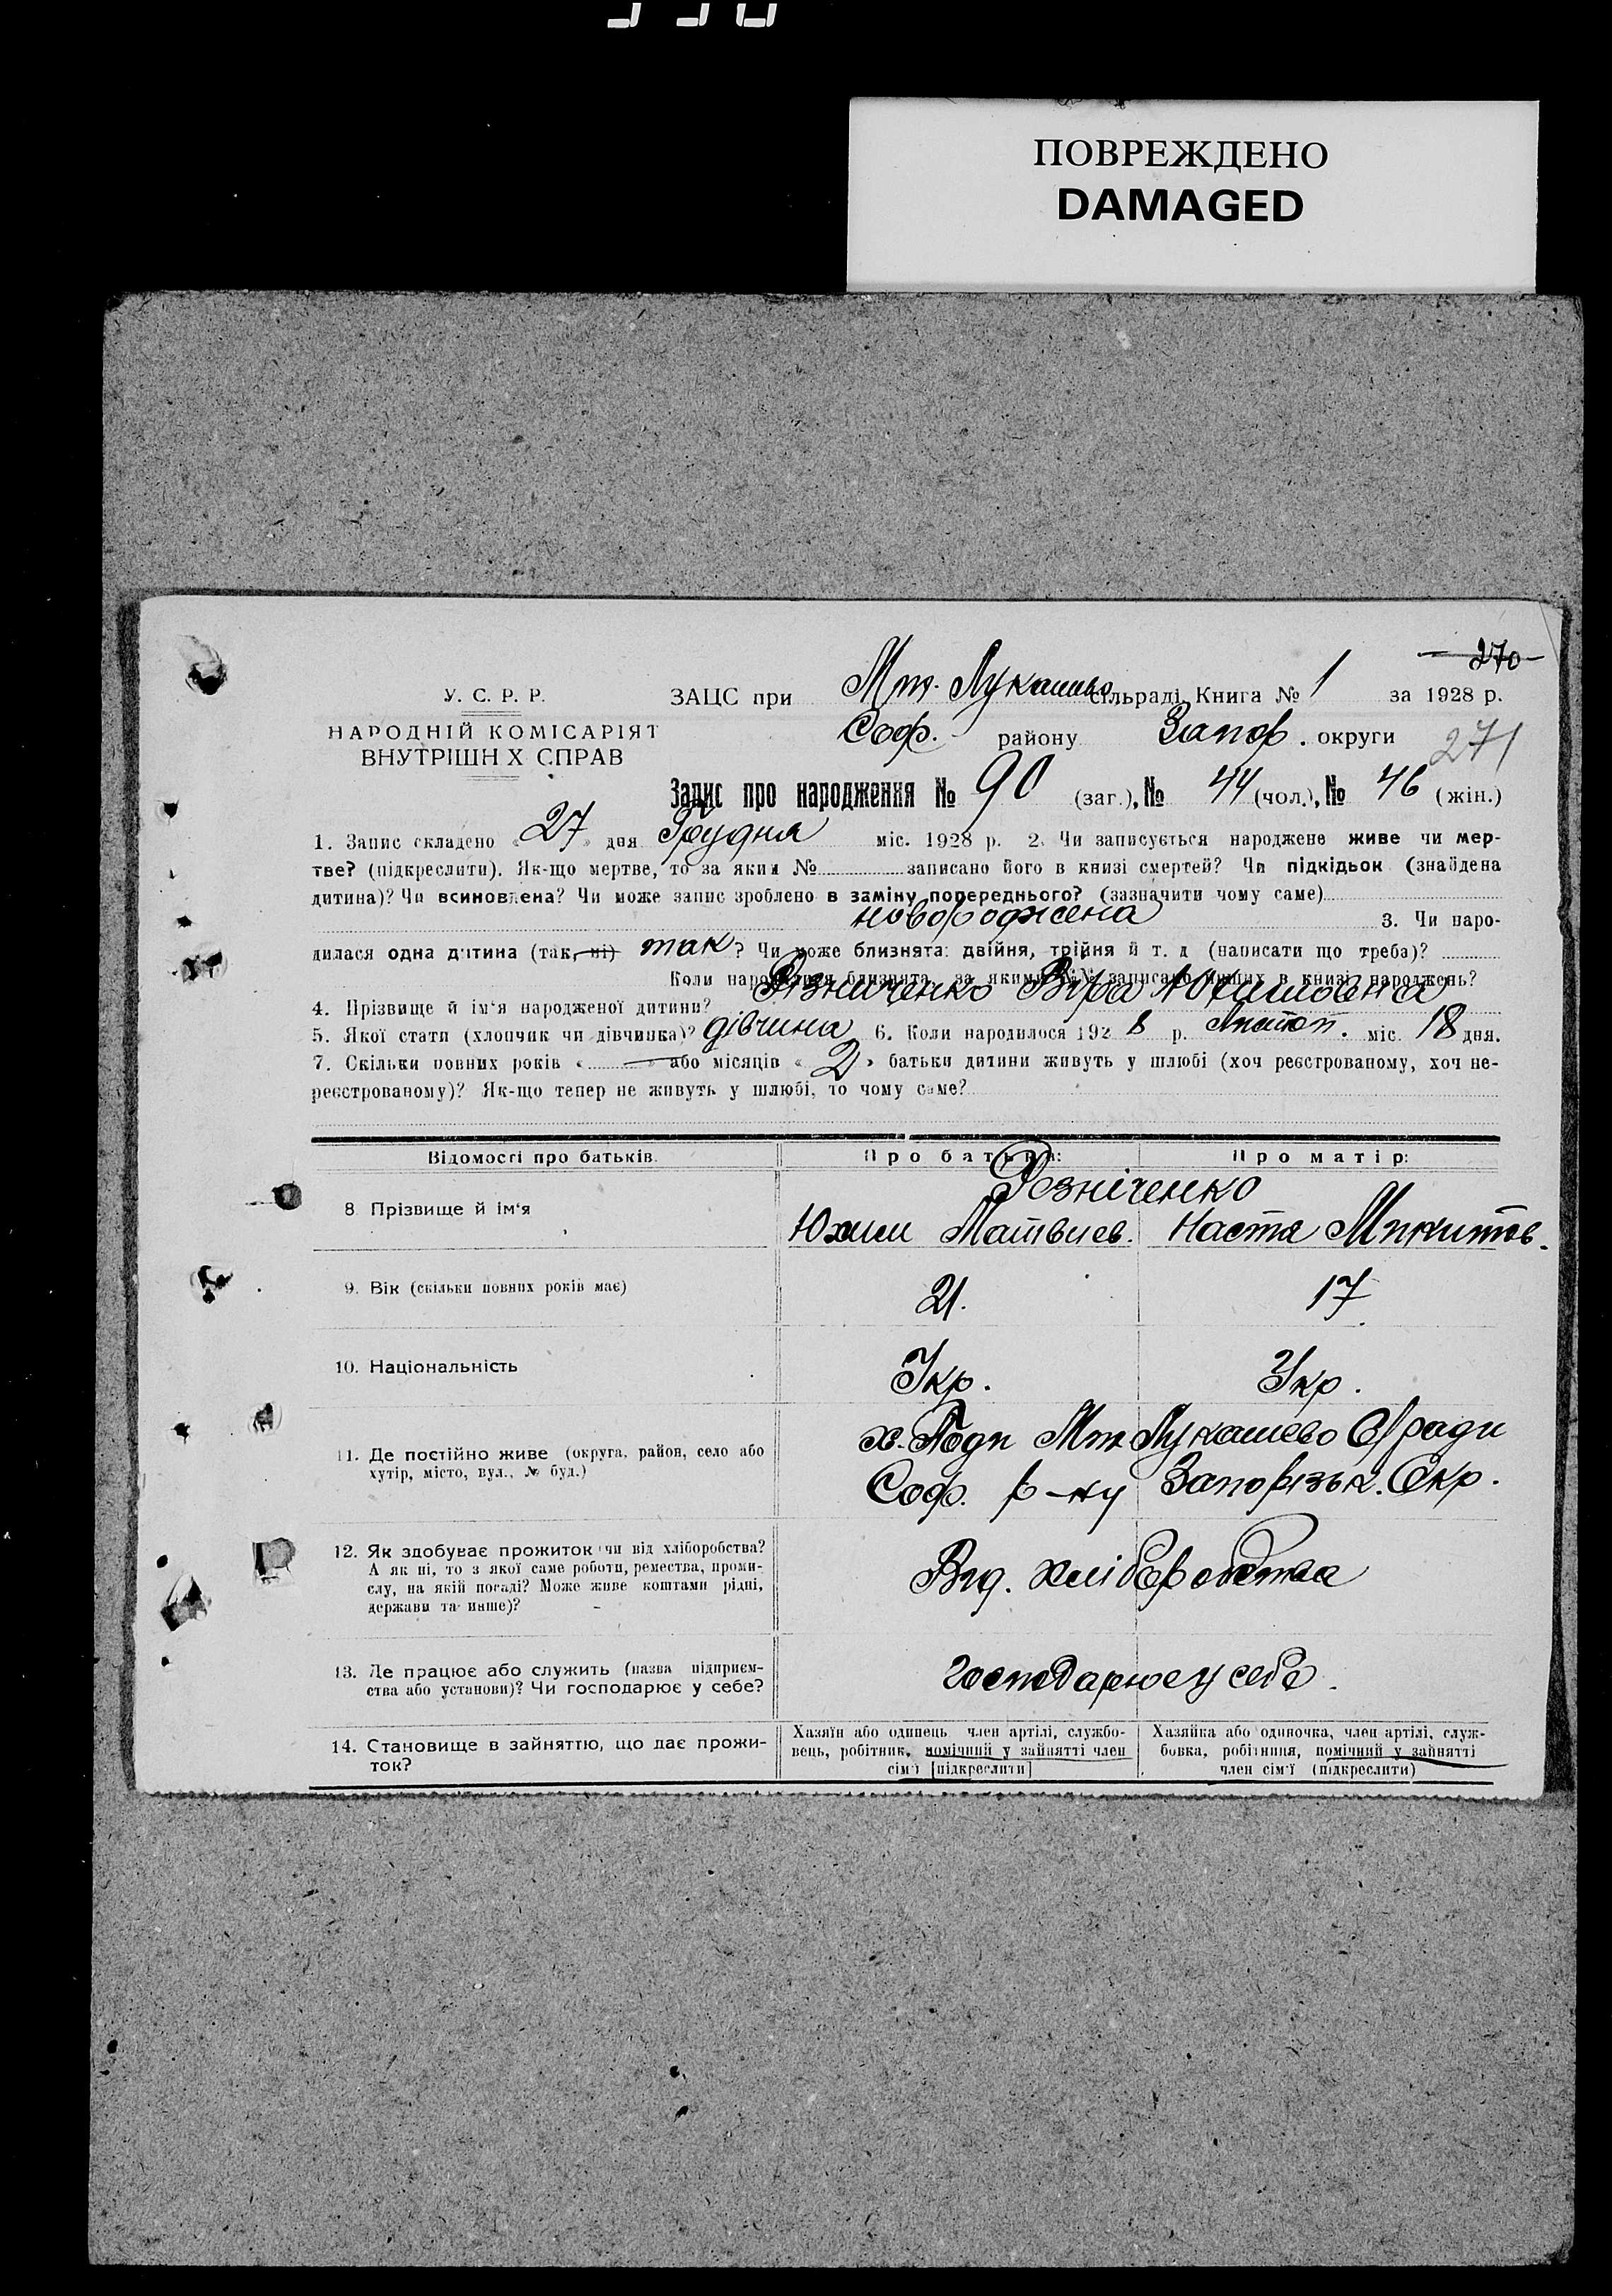 ПОВРЕЖДЕНО
DAMAGED
270
У. С. Р. Р.
НАРОДНІЙ КОМІСАРІЯТ
ВНУТРІШН Х СПРАВ
ЗАЦС при Мт. Лукашево сільраді, Книга № 1 за 1928 р.
Соф. району Запор. округи 271
Запис про народження № 90 (заг.), № 44 (чол.), № 46 (жін.)
1. Запис складено « 27 » дня Грудня міс. 1928 р. 2. Чи записується народжене живе чи мер-
тве? (підкреслити). Як-що мертве, то за яким № записано його в книзі смертей? Чи підкідьок (знайдена
дитина)? Чи всиновлена? Чи може запис зроблено в заміну попереднього? (зазначити чому саме)
новороджена 3. Чи наро-
дилася одна дитина (так, ні) так? Чи може близнята: двійня, трійня й т. д (написати що треба)?
Коли народилися близнята, за якими №№ записано інших в книзі народжень?
4. Прізвище й ім'я народженої дитини? Різниченко Віра Юхимовна
5. Якої стати (хлопчик чи дівчинка)? дівчина 6. Коли народилося 192 8 р. Листоп. міс. 18 дня.
7. Скільки повних років « — » або місяців « 2 » батьки дитини живуть у шлюбі (хоч реєстрованому, хоч не-
реєстрованому)? Як-що тепер не живуть у шлюбі, то чому саме?
Відомості про батьків. Про батька: Про матір:
Резніченко
8 Прізвище й ім'я Юхим Матвиев. Настя Микитов.
9. Вік (скільки повних років має) 21. 17
10. Національність Укр. Укр.
11. Де постійно живе (округа, район, село або
хутір, місто, вул., № буд.)
Мт Лукашево С/ради
Соф. р-ну Запорізьк. Окр.
12. Як здобуває прожиток чи від хліборобства?
А як ні, то з якої саме роботи, ремества, проми-
слу, на якій посаді? Може живе коштами рідні,
держави та инше)?
Від. хліборобства
13. Де працює або служить (назва підприєм-
ства або установи)? Чи господарює у себе?
господарює у себе.
14. Становище в зайняттю, що дає прожи-
ток?
Хазяїн або одинець член артілі, службо-
вець, робітник, помічний у зайнятті член
сім'ї [підкреслити]
Хазяйка або одиночка, член артілі, служ-
бовка, робітниця, помічний у зайнятті
член сім'ї (підкреслити)